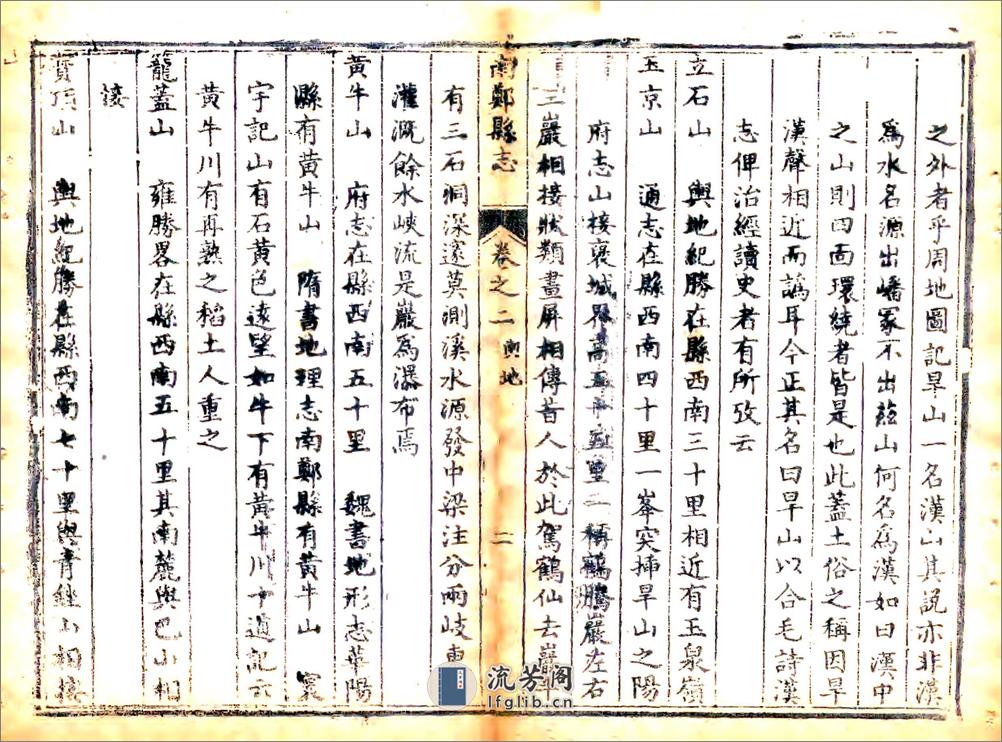 之外者乎周地圖記旱山一名漢山其説亦非漢
為水名源出嶓冢不出茲山何名為漢如曰漢中
之山則四面環繞者皆是也此蓋土俗之稱因旱
漢聲相近而譌耳今正其名曰旱山以合毛詩漢
志俾治經讀史者有所攷云
立石山　輿地紀勝在縣西南三十里相近有玉泉嶺
玉京山　通志在縣西南四十里一峯突揷旱山之陽
府志山接褒城界高五十里二稱鶴騰巖左右
三巖相接狀類畫屏相傳昔人於此駕鶴仙去巖
南鄭縣志　卷之二 輿地　二
有三石洞深邃莫測溪水源發中梁注分兩岐東
灌溉餘水峽流是巖為瀑布焉
黄牛山　府志在縣西南五十里　魏書地形志華陽
縣有黄牛山　隋書地理志南鄭縣有黄牛山　寰
宇記山有石黄色遠望如牛下有黄牛川十道記云
黄牛川有再熟之稻土人重之
龍蓋山　雍勝畧在縣西南五十里其南麓與巴山相
接
寶頂山　輿地紀勝在縣西南七十里與青銼山相接
流芳阁
lfglib.cn